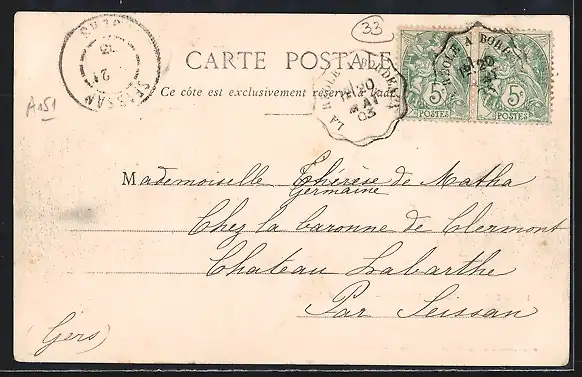 33
CARTE POSTALE
Ce côté est exclusivement réservé à l'adresse
A151
SEISSAN
21
LA RÉOLE A BORDEAUX
20
MAI
03
LA RÉOLE A BORD
20
MAI
5c 5c
POSTES POSTES
Mademoiselle Thérèse de Matha
Germaine
Chez la baronne de Clermont
Chateau Labarthe
Par Seissan
(Gers)